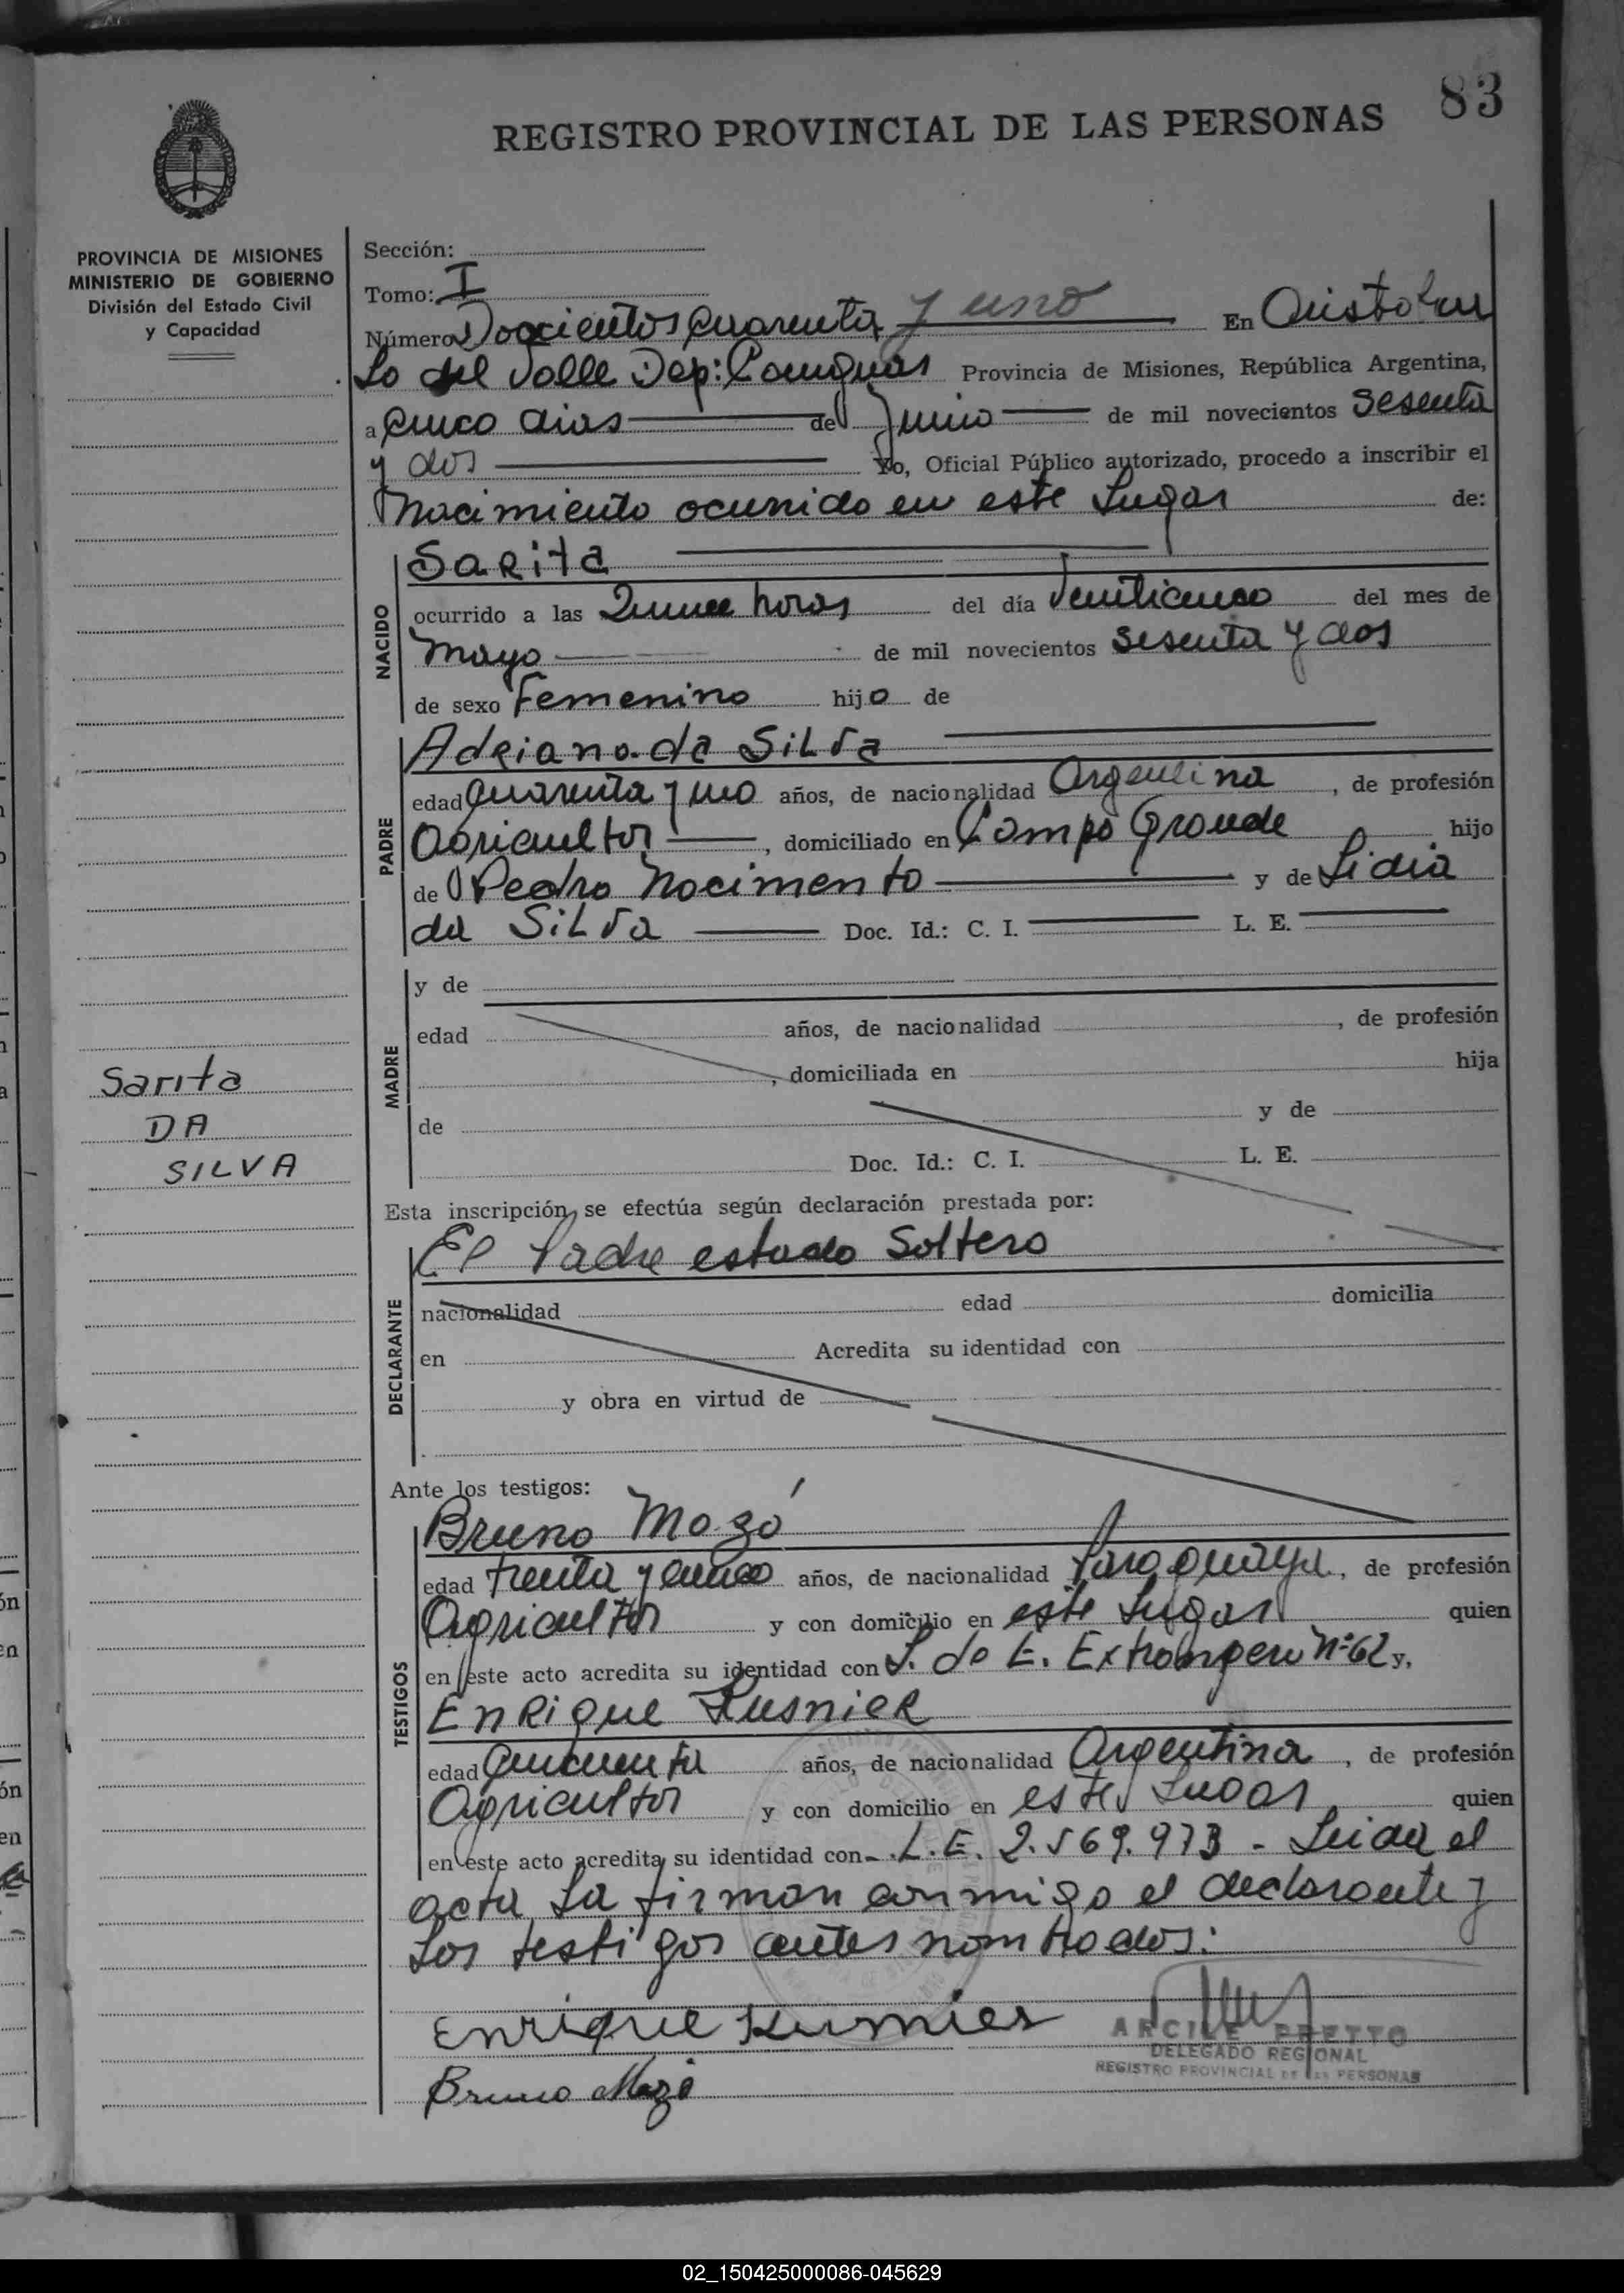 83
REGISTRO PROVINCIAL DE LAS PERSONAS
PROVINCIA DE MISIONES
MINISTERIO DE GOBIERNO
División del Estado Civil
y Capacidad
Sección:
Tomo: I
Número Doscientos cuarenta y uno En Cristobu
Lo del Valle Dep: Cainguas Provincia de Misiones, República Argentina,
a cinco dias de Junio de mil novecientos sesenta
y dos Yo, Oficial Público autorizado, procedo a inscribir el
Nacimiento ocurrido en este Lugar de:
NACIDO
Sarita
ocurrido a las Quince horas del día Veinticinco del mes de
Mayo de mil novecientos sesenta y dos
de sexo Femenino hijo de
PADRE
Adriano da Silva
edad cuarenta y uno años, de nacionalidad Argentina, de profesión
Agricultor, domiciliado en Campo Grande hijo
de Pedro Nacimento y de Lidia
da Silva Doc. Id.: C. I. L. E.
MADRE
y de
edad años, de nacionalidad , de profesión
, domiciliada en hija
de y de
Doc. Id.: C. I. L. E.
Sarita
DA
SILVA
Esta inscripción, se efectúa según declaración prestada por:
El Padre estado Soltero
DECLARANTE
nacionalidad edad domicilia
en Acredita su identidad con
y obra en virtud de
Ante los testigos:
TESTIGOS
Bruno Mozó
edad treinta y cinco años, de nacionalidad Paraguaya, de profesión
Agricultor y con domicilio en este Lugar quien
en este acto acredita su identidad con L. de E. Extrangero Nº 62 y,
Enrique Kusnier
edad cincuenta años, de nacionalidad Argentina, de profesión
Agricultor y con domicilio en este Lugar quien
en este acto acredita su identidad con L.E. 2.569.973 - Leida el
acta La firman conmigo el declarante y
Los testigos antes nombrados:
Enrique Kusnier
Bruno Mozó
ARCILE PRETTO
DELEGADO REGIONAL
REGISTRO PROVINCIAL DE LAS PERSONAS
02_150425000086-045629